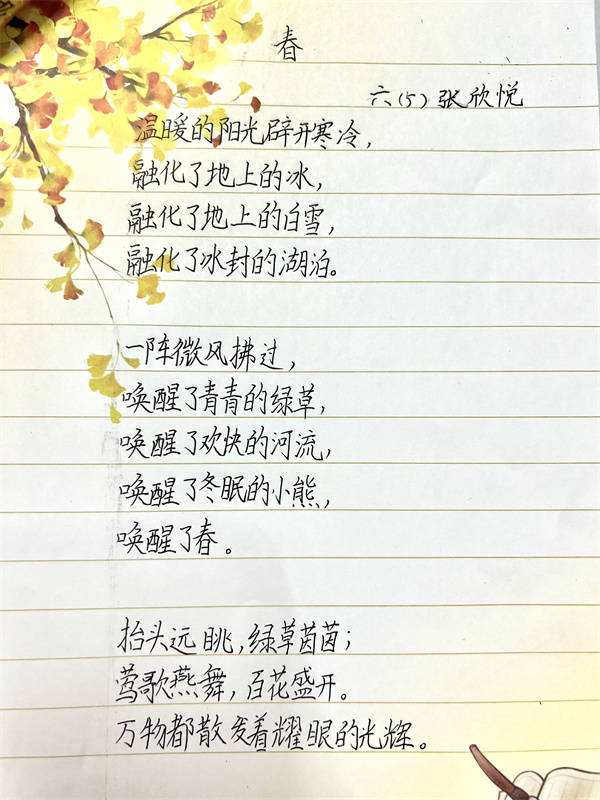 春
六(5)张欣悦
温暖的阳光辟开寒冷,
融化了地上的冰,
融化了地上的白雪,
融化了冰封的湖泊。
一阵微风拂过,
唤醒了青青的绿草,
唤醒了欢快的河流,
唤醒了冬眠的小熊,
唤醒了春。
抬头远眺,绿草茵茵;
莺歌燕舞,百花盛开。
万物都散发着耀眼的光辉。